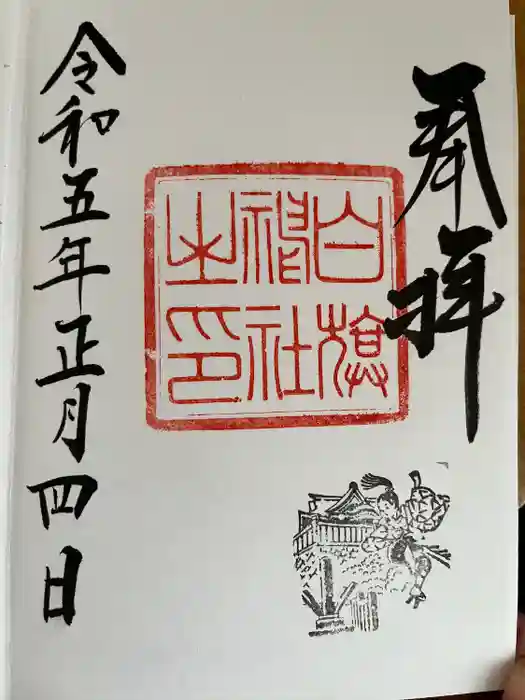 奉拝
白旗
神社
之印
令和五年正月四日